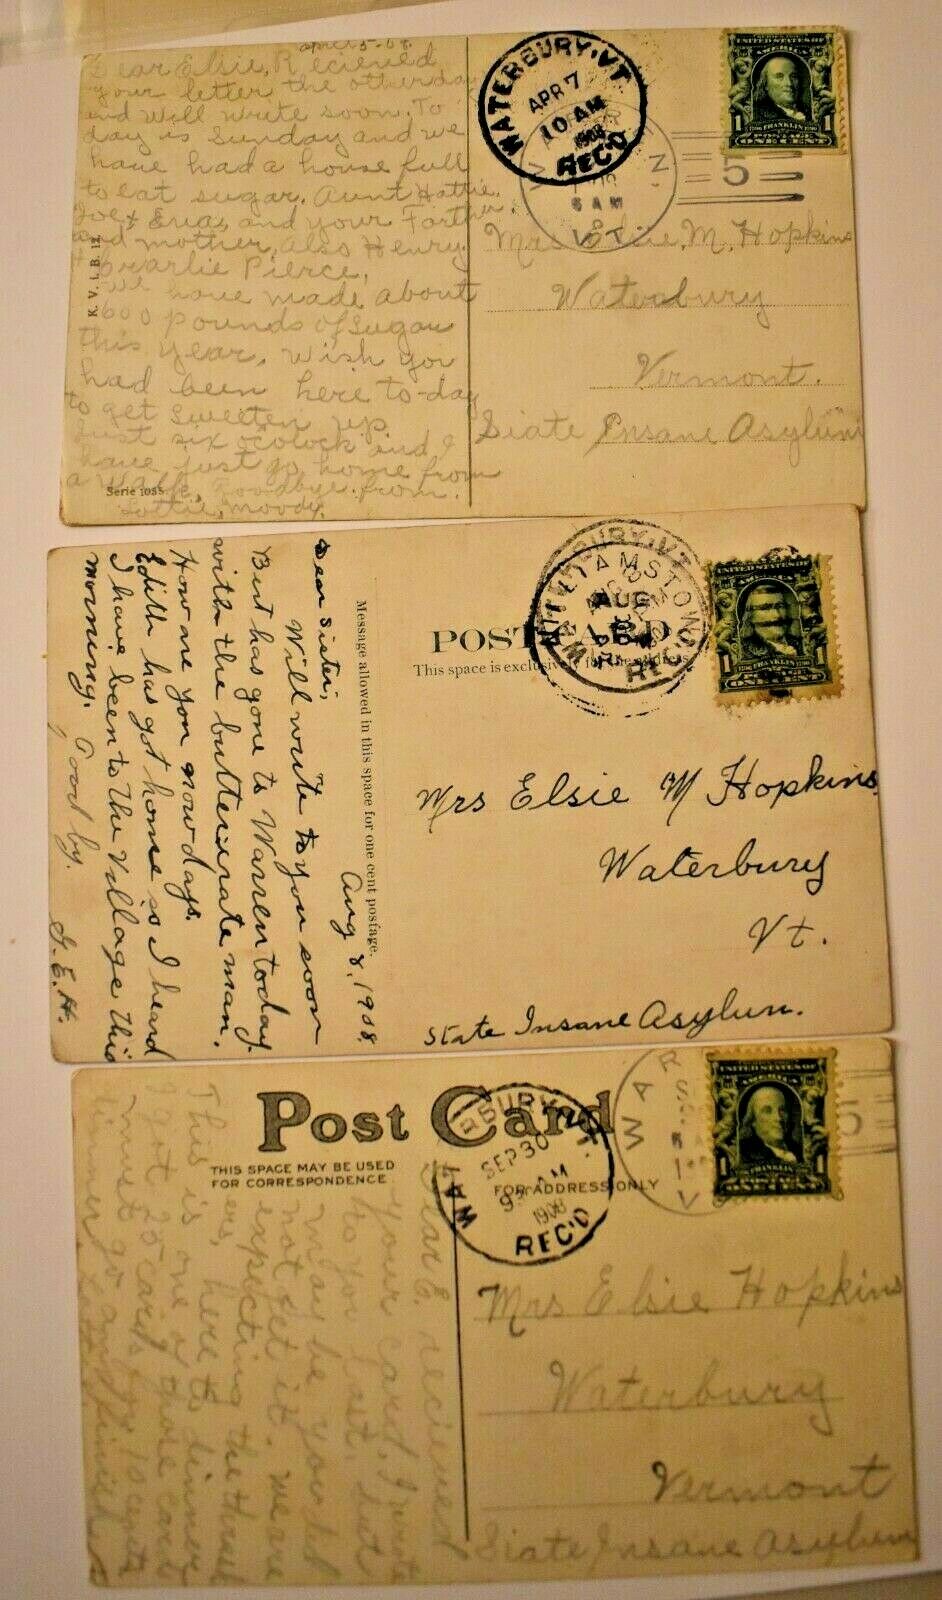 april 5-08.
Dear Elsie, Recieved
your letter the other day
and will write soon. To
day is Sunday and we
have had a house full
to eat sugar. Aunt Hattie,
Joe & Eva, and your Farther
and mother, also Henry
& Charlie Pierce,
We have made about
600 pounds of sugar
this year. Wish you
had been here to-day
to get sweeten up
Just six o'clock and I
have just got home from
a walk. Goodbye from.
Lottie Moody.
K. V. i. B. 12
Serie 1085
WATERBURY, VT.
APR 7
10 AM
1908
REC'D
6 AM
VT.
5
UNITED STATES OF
AMERICA
1 1706 FRANKLIN 1790 1
POSTAGE
ONE CENT
Mrs Elsie. M. Hopkins
Waterbury
Vermont.
State Insane Asylum
Aug 8, 1908.
Dear Sister,
Will write to you soon
But has gone to Warren today
with the butterirate man.
How are you now days.
Edith has got home so I heard
I have been to the Village this
morning. Good by.
G. E. H.
Message allowed in this space for one cent postage.
POST CARD
This space is exclusively for the address
AUG
REC'D
UNITED STATES OF
AMERICA
1 1706 FRANKLIN 1790 1
POSTAGE
ONE CENT
Mrs Elsie M Hopkins,
Waterbury
Vt.
State Insane Asylum.
POST CARD
THIS SPACE MAY BE USED
FOR CORRESPONDENCE
FOR ADDRESS ONLY
Dear E. recieved
your card. I wrote
to you last, but
may be you did
not get it. We are
expecting the thrash
ers, here to dinner
This is one of those cards
I got 25 cards for 15 cents
must go and finish
dinner. Lottie
SEP 30
9 AM
1908
REC'D
WAR
5
UNITED STATES OF
AMERICA
1 FRANKLIN 1
POSTAGE
ONE CENT
Mrs Elsie Hopkins
Waterbury
Vermont
State Insane Asylum